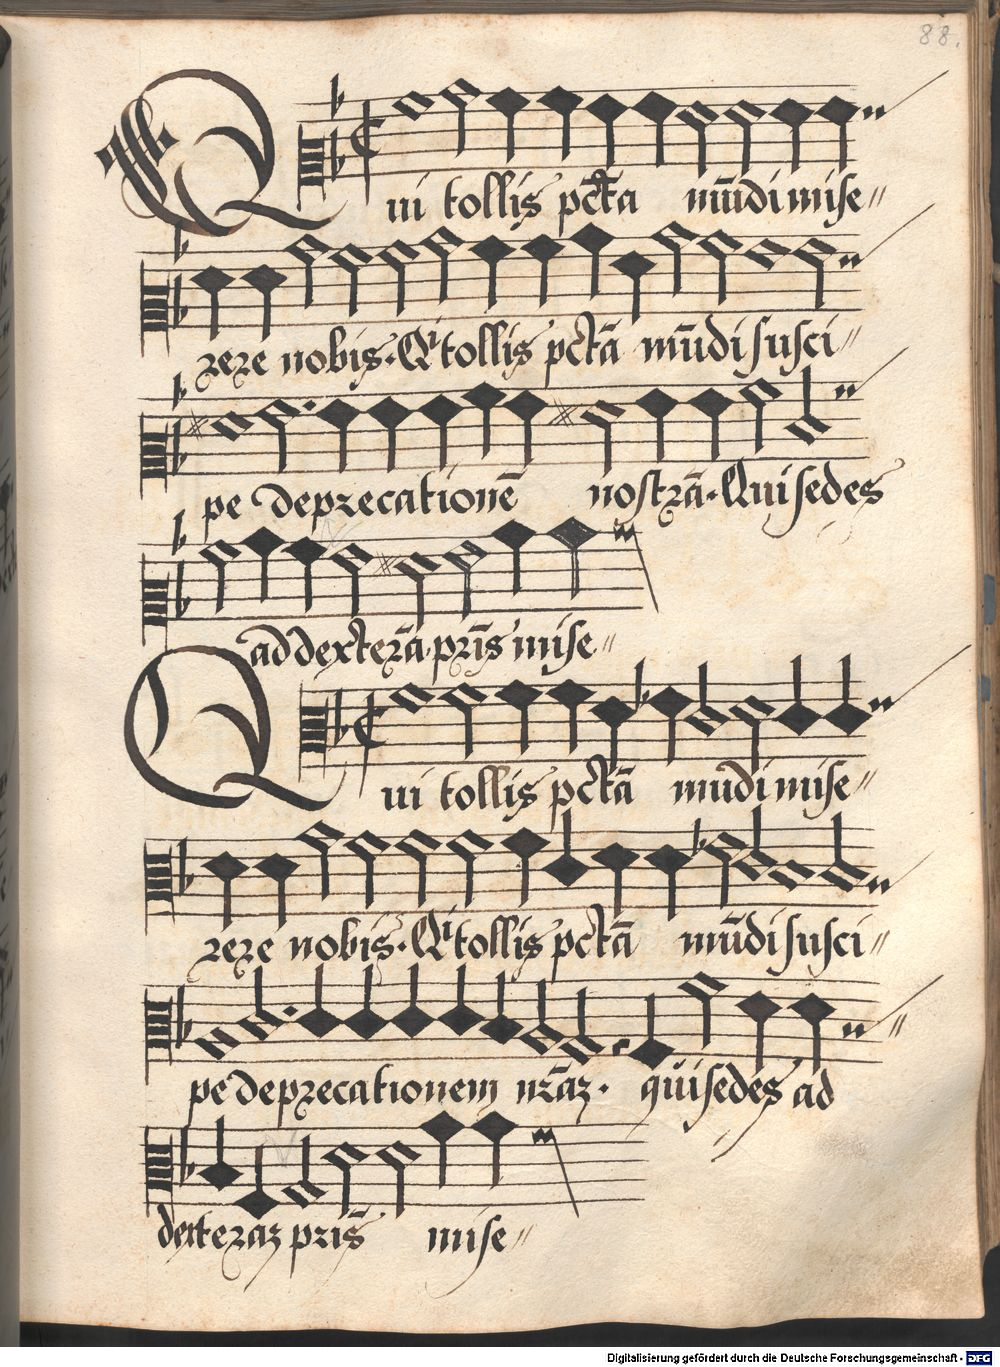 88.
Qui tollis pctā mūdi mise
rere nobis. Qi tollis pctā mūdi susci
pe deprecationē nostrā. Qui sedes
ad dexterā prīs mise
Qui tollis pctā mūdi mise
rere nobis. Qi tollis pctā mūdi susci
pe deprecationem nrāz. qui sedes ad
dexteraz prīs mise
Digitalisierung gefördert durch die Deutsche Forschungsgemeinschaft - DFG